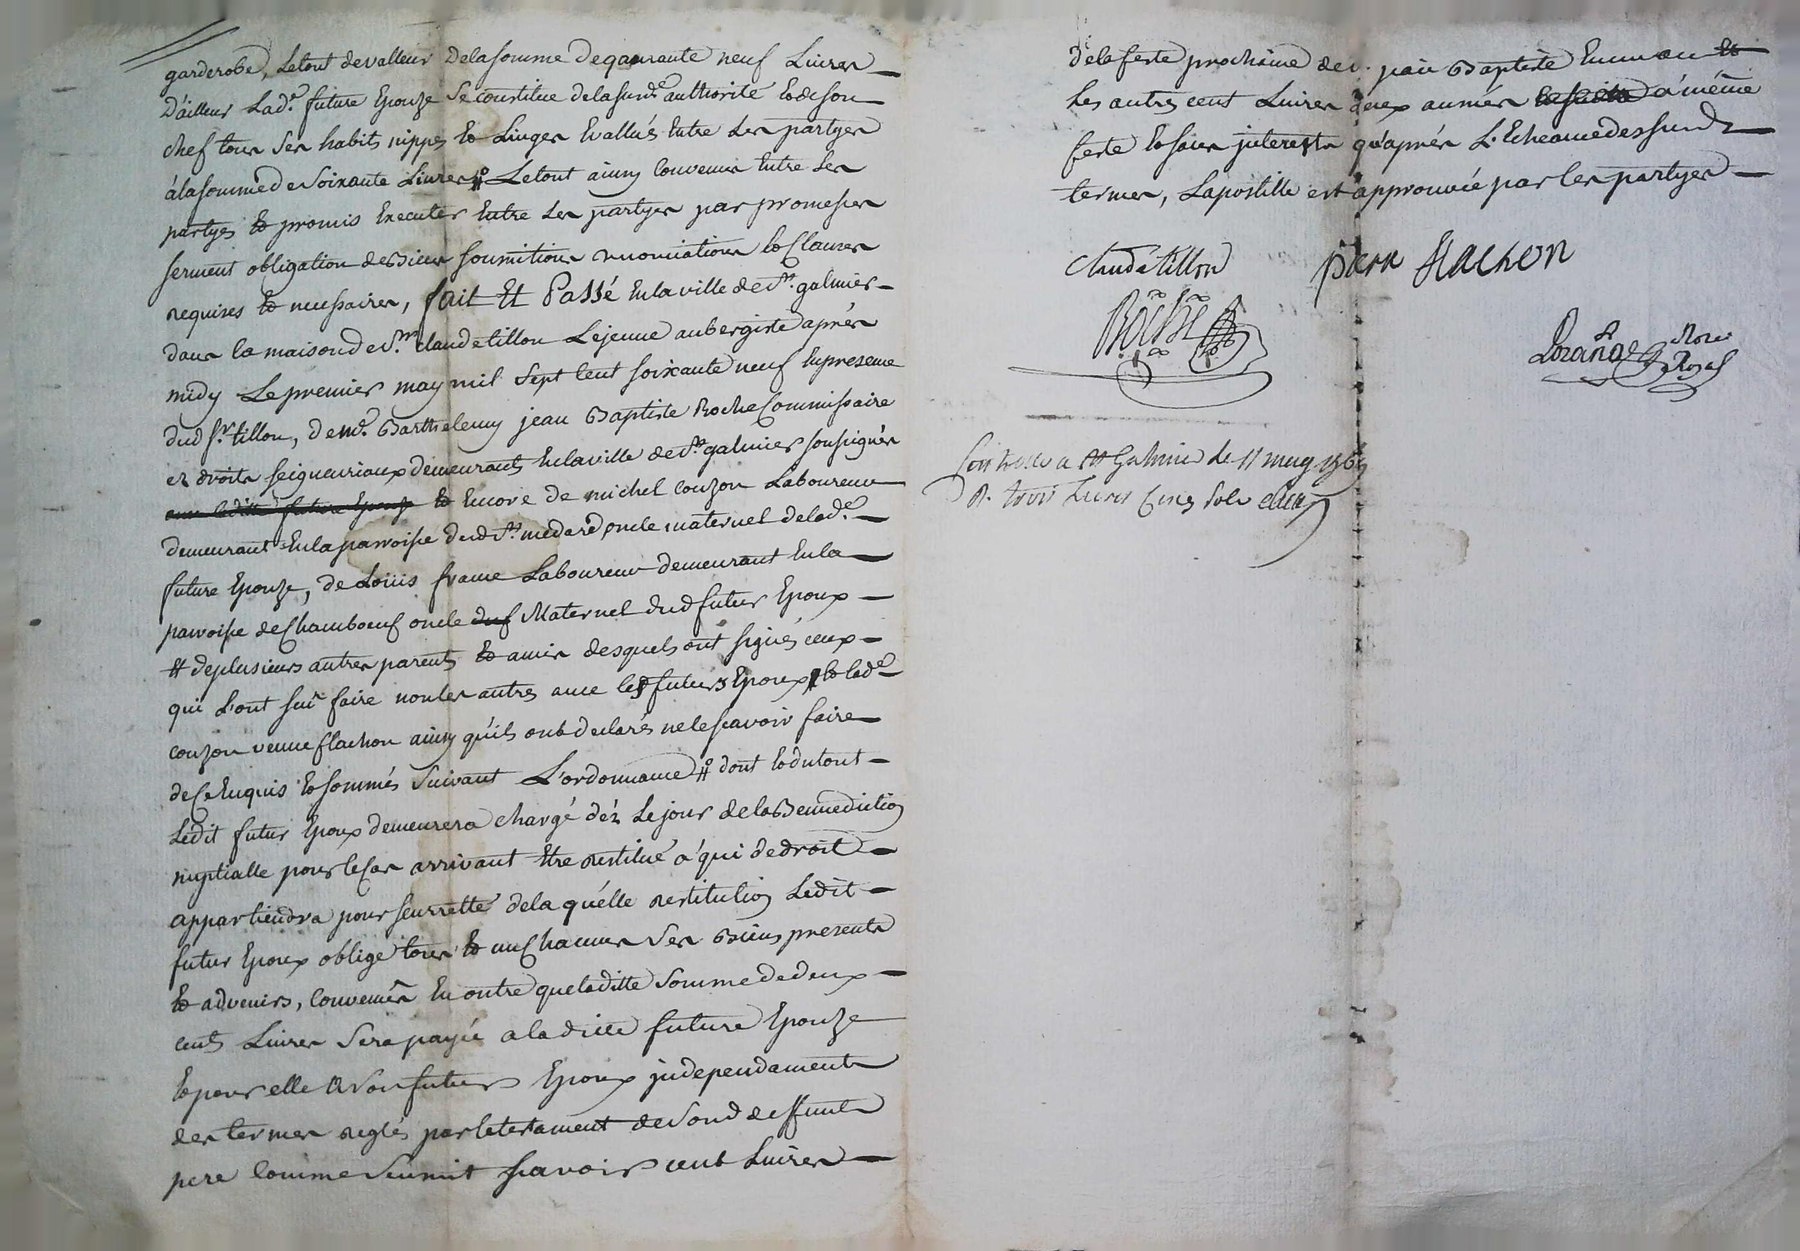 garderobe, Letout devalleur Delasomme dequarante neuf Livres
D'ailleur Lad.e future Epouze Se constitue delasusd.e authorité et deson
chef tous Ses habits nippes et Linges Evallués Entre Les partyes
àlasomme de Soixante Livres # Letout ainsy Convenus Entre Les
partyes et promis Executer Entre Les partyes par promesses
serment obligation de Biens soumitions renonciations et Clauses
requises et necessaires, fait Et Passé Enlaville de St. galmier
dans la maison de Sr. claude tillon Lejeune aubergiste après
midy Le premier may mil Sept Cent soixante neuf En presence
dud Sr. tillon, de Me. Barthelemy jean Baptiste Roche Commissaire
ez droits seigneuriaux demeurants Enlaville de St. galmier soussignés
et Encore de michel couzon Laboureur
demeurant Enla parroisse dud St. medard, oncle maternel de lad.e
future Epouze, de Loüis frame Laboureur demeurant Enla
parroisse de Chambœuf oncle Maternel dud futur Epoux
Et deplusieurs autres parents et amis desquels ont signés ceux
qui L'ont sçu faire non les autres avec les futurs Epoux et lad.e
couzon veuve flachon ainsy qu'ils ont declarés ne le scavoir faire
de Ce Enquis et sommés Suivant L'ordonnance # dont et du tout
Ledit futur Epoux demeurera chargé dèz Le jour de la Bennediction
nuptialle pour le Cas arrivant Etre restitué a qui de droit
appartiendra pour seurretté de laquélle restitution Ledit
futur Epoux oblige tous et un Chacuns Ses Biens presents
et advenirs, Convenus En outre que laditte Somme de deux
cents Livres Sera payée a la ditte future Epouze
et pour elle a son futur Epoux independament
des termes reglés par le testament de Sond deffunt
pere Comme Seuüit scavoir cent Livres
de la feste prochaine de jean Baptiste En un an et
Les autres cent Livres deux années a même
feste Et sans interests qu'après L'Echeance desSusd
termes, Lapostille est approuvée par Les partyes
Claude tillon piere flachon
Roche
Lorange Nore Royal
Controllé a St Galmier le 11 may 1769
R. trois Livres Cinq sols